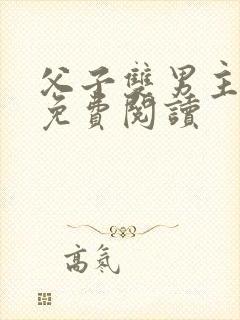 父子雙男主
免費閱讀
高氣